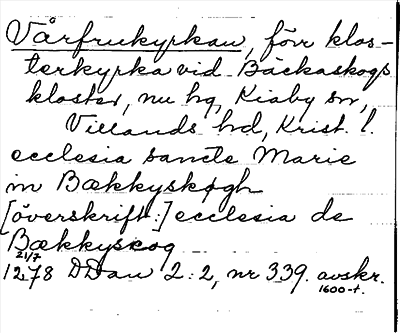 Vårfrukyrkan, förr klos-
terkyrka vid Bäckaskogs
kloster, nu hg, Kiaby sn,
Villands hd, Krist. l.
ecclesia sancte Marie
in Bækkyskøgh
[överskrift:] ecclesia de
Bækkyskog
21/7
1278 DDan 2:2, nr 339. avskr.
1600-t.